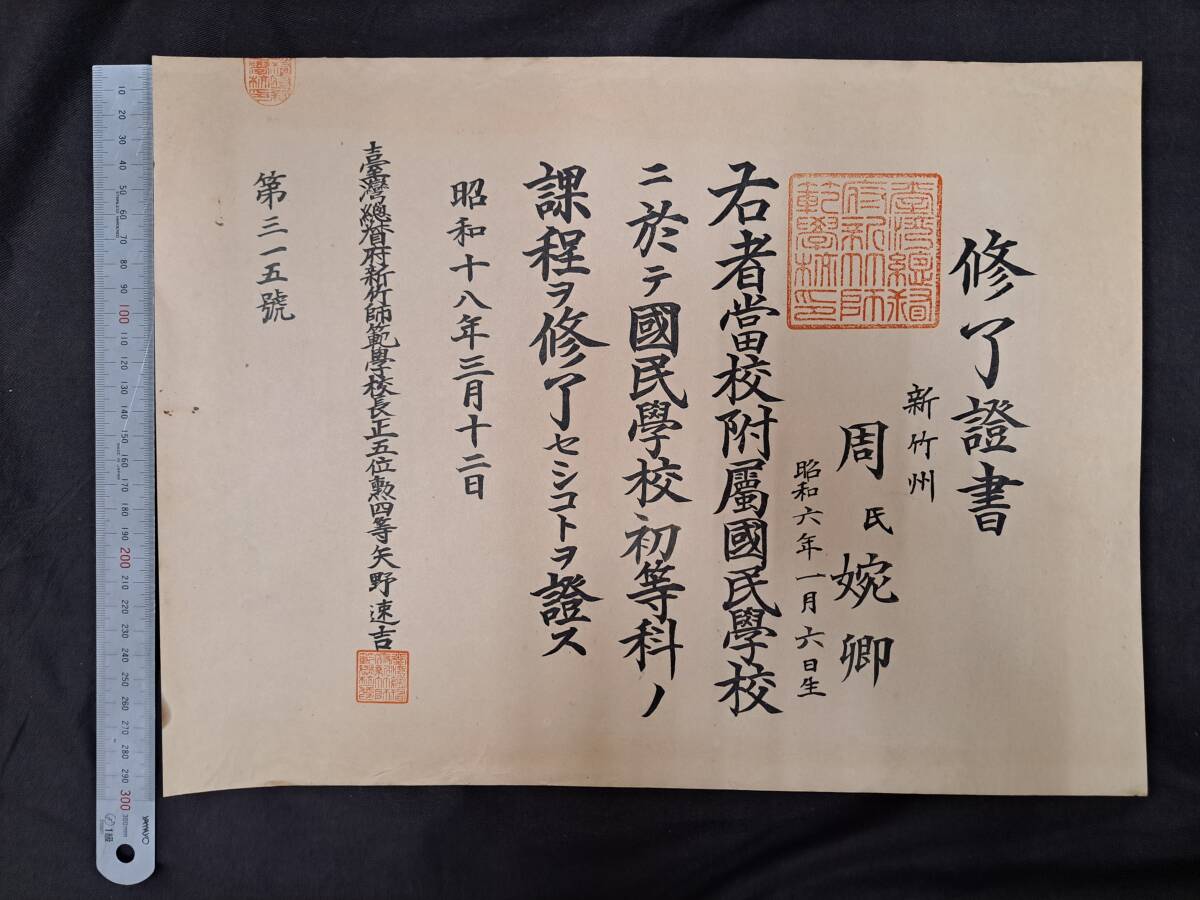 修了證書
新竹州
周氏婉卿
昭和六年一月六日生
右者當校附屬國民學校
ニ於テ國民學校初等科ノ
課程ヲ修了セシコトヲ證ス
昭和十八年三月十二日
臺灣總督府新竹師範學校長正五位勲四等矢野速吉
第三一五號
臺灣總督
府新竹師
範學校印
10
20
30
40
50
60
70
80
90
100
110
120
130
140
150
160
170
180
190
200
210
220
230
240
250
260
270
280
290
300
1級